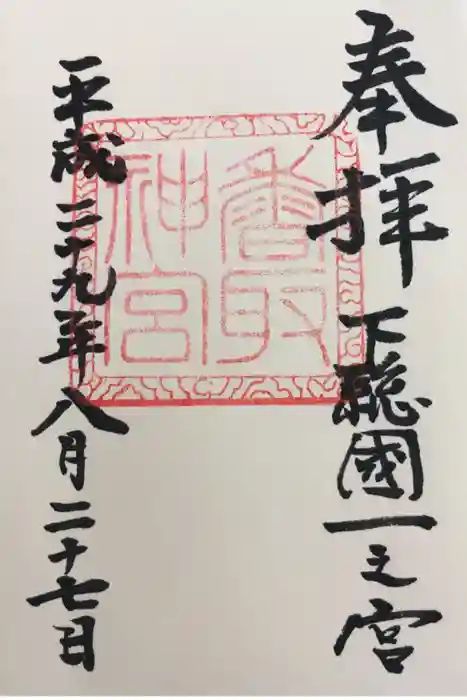 奉拝
下総國一之宮
香取
神宮
平成二十九年八月二十七日